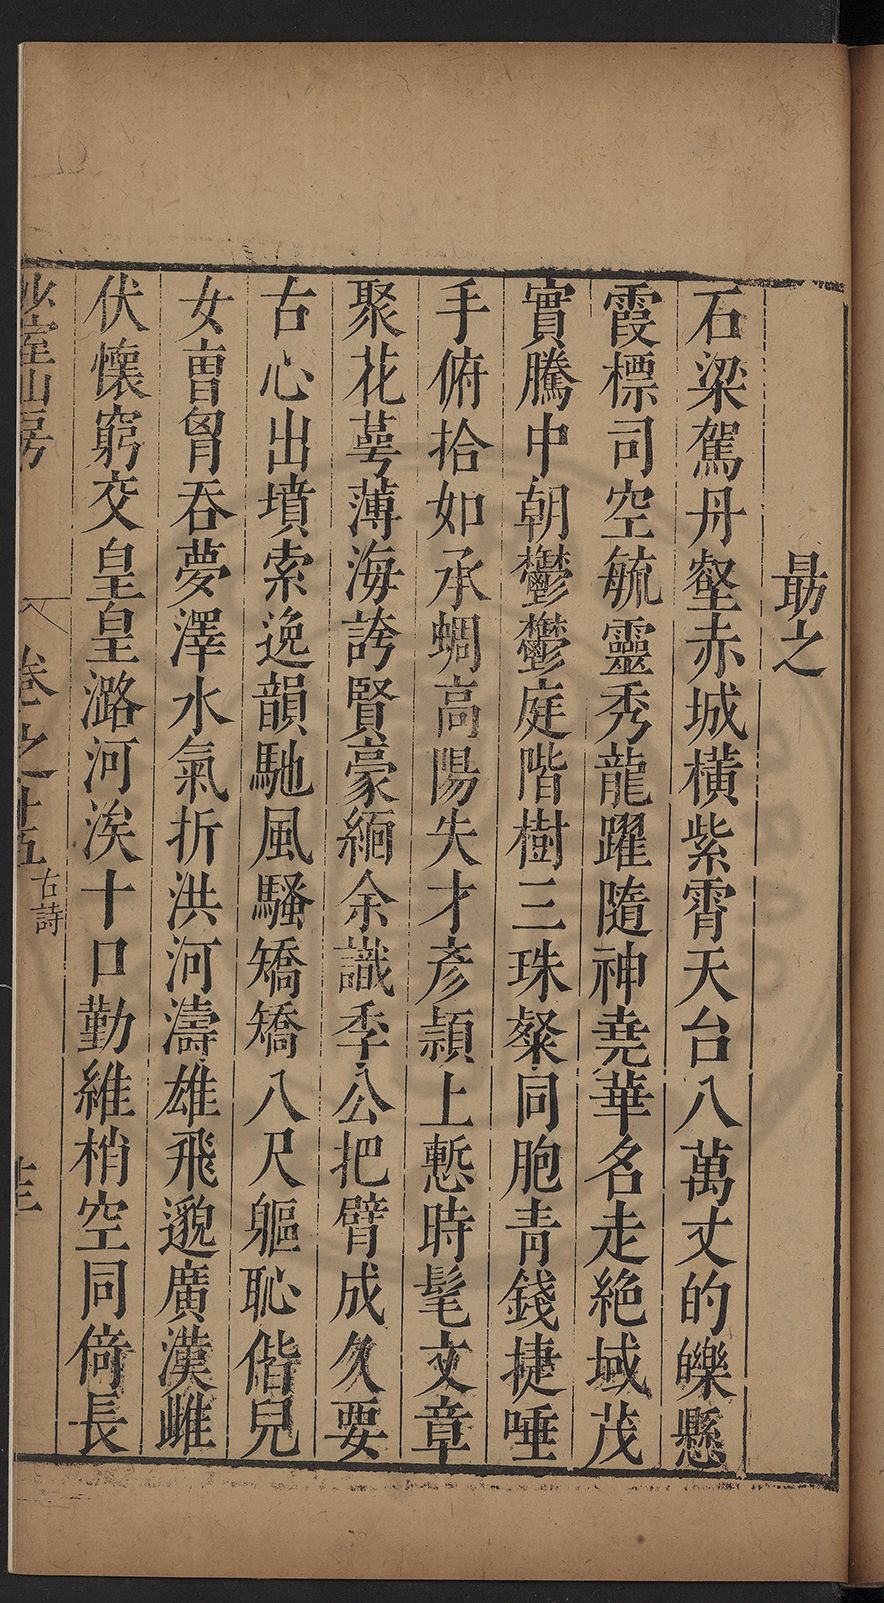 勗之
石梁駕丹壑赤城橫紫霄天台八萬丈的皪懸
霞標司空毓靈秀龍躍隨神堯華名走絕域茂
實騰中朝鬱鬱庭階樹三珠粲同胞青錢捷唾
手俯拾如承蜩高陽失才彥頴上慙時髦文章
聚花萼薄海誇賢豪緬余識季公把臂成久要
古心出墳索逸韻馳風騷矯矯八尺軀恥偕兒
女曹胷吞夢澤水氣折洪河濤雄飛邈廣漢雌
伏懷窮交皇皇潞河涘十口勤維梢空同倚長
少室山房
卷之十五
古詩